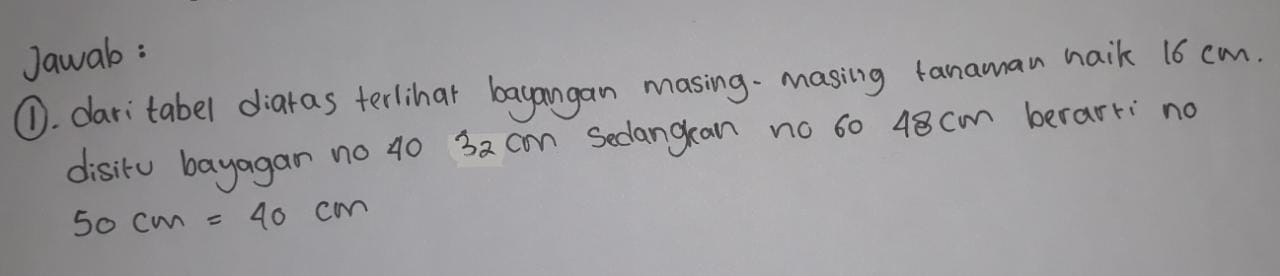 Jawab :
①. dari tabel diatas terlihat bayangan masing-masing tanaman naik 16 cm.
disitu bayagan no 40 32 cm sedangkan no 60 48 cm berarti no
50 cm = 40 cm